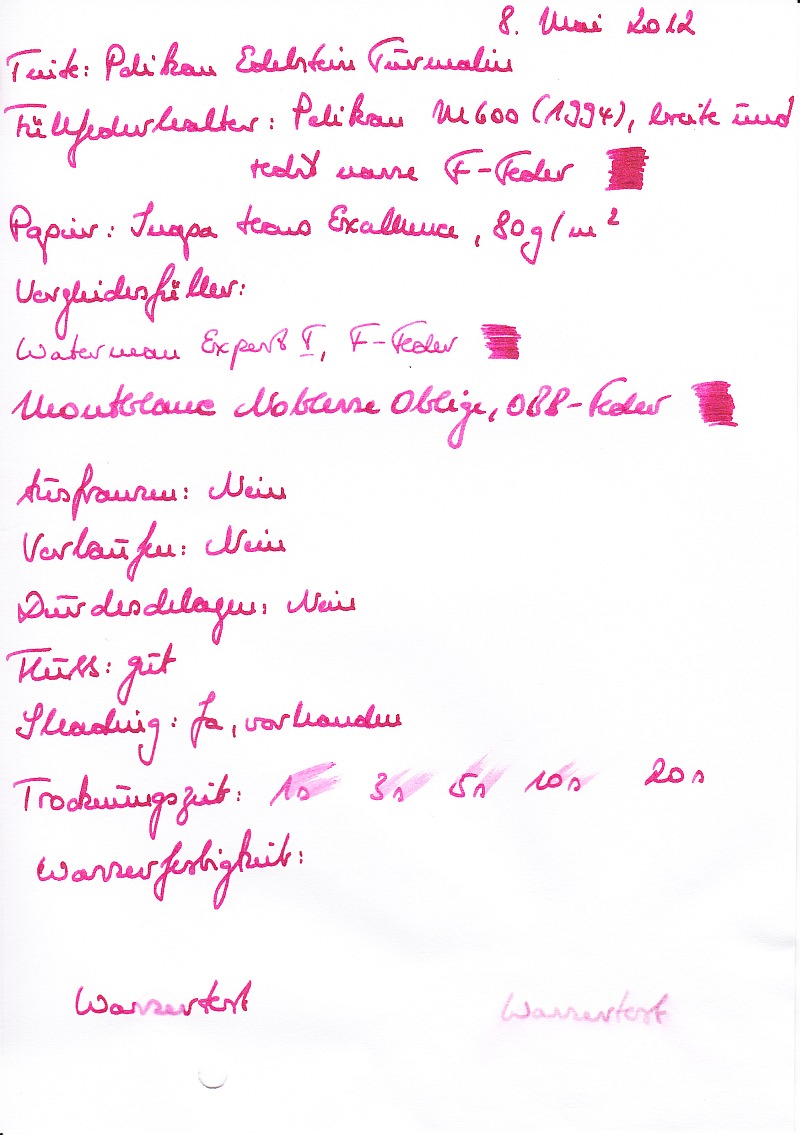 8. Mai 2012
Tinte: Pelikan Edelstein Turmalin
Füllfederhalter: Pelikan M600 (1994), breite und
recht nasse F-Feder
Papier: Inapa tecno Excellence, 80g/m²
Vergleichsfüller:
Waterman Expert I, F-Feder
Montblanc Noblesse Oblige, OBB-Feder
Ausfransen: Nein
Verlaufen: Nein
Durchschlagen: Nein
Fluss: gut
Shading: Ja, vorhanden
Trocknungszeit: 1s 3s 5s 10s 20s
Wasserfestigkeit:
Wassertest Wassertest